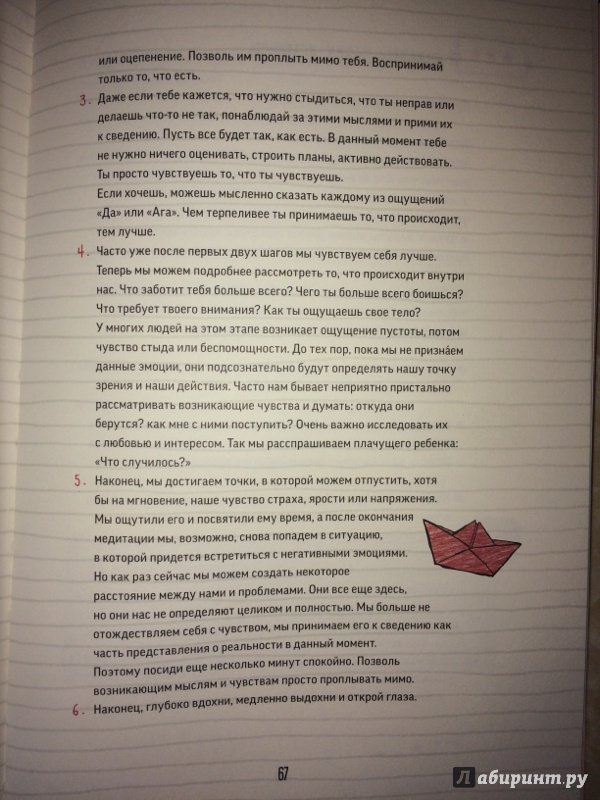 или оцепенение. Позволь им проплыть мимо тебя. Воспринимай
только то, что есть.
3. Даже если тебе кажется, что нужно стыдиться, что ты неправ или
делаешь что-то не так, понаблюдай за этими мыслями и прими их
к сведению. Пусть все будет так, как есть. В данный момент тебе
не нужно ничего оценивать, строить планы, активно действовать.
Ты просто чувствуешь то, что ты чувствуешь.
Если хочешь, можешь мысленно сказать каждому из ощущений
«Да» или «Ага». Чем терпеливее ты принимаешь то, что происходит,
тем лучше.
4. Часто уже после первых двух шагов мы чувствуем себя лучше.
Теперь мы можем подробнее рассмотреть то, что происходит внутри
нас. Что заботит тебя больше всего? Чего ты больше всего боишься?
Что требует твоего внимания? Как ты ощущаешь свое тело?
У многих людей на этом этапе возникает ощущение пустоты, потом
чувство стыда или беспомощности. До тех пор, пока мы не призна́ем
данные эмоции, они подсознательно будут определять нашу точку
зрения и наши действия. Часто нам бывает неприятно пристально
рассматривать возникающие чувства и думать: откуда они
берутся? как мне с ними поступить? Очень важно исследовать их
с любовью и интересом. Так мы расспрашиваем плачущего ребенка:
«Что случилось?»
5. Наконец, мы достигаем точки, в которой можем отпустить, хотя
бы на мгновение, наше чувство страха, ярости или напряжения.
Мы ощутили его и посвятили ему время, а после окончания
медитации мы, возможно, снова попадем в ситуацию,
в которой придется встретиться с негативными эмоциями.
Но как раз сейчас мы можем создать некоторое
расстояние между нами и проблемами. Они все еще здесь,
но они нас не определяют целиком и полностью. Мы больше не
отождествляем себя с чувством, мы принимаем его к сведению как
часть представления о реальности в данный момент.
Поэтому посиди еще несколько минут спокойно. Позволь
возникающим мыслям и чувствам просто проплывать мимо.
6. Наконец, глубоко вдохни, медленно выдохни и открой глаза.
67
Лабиринт.ру